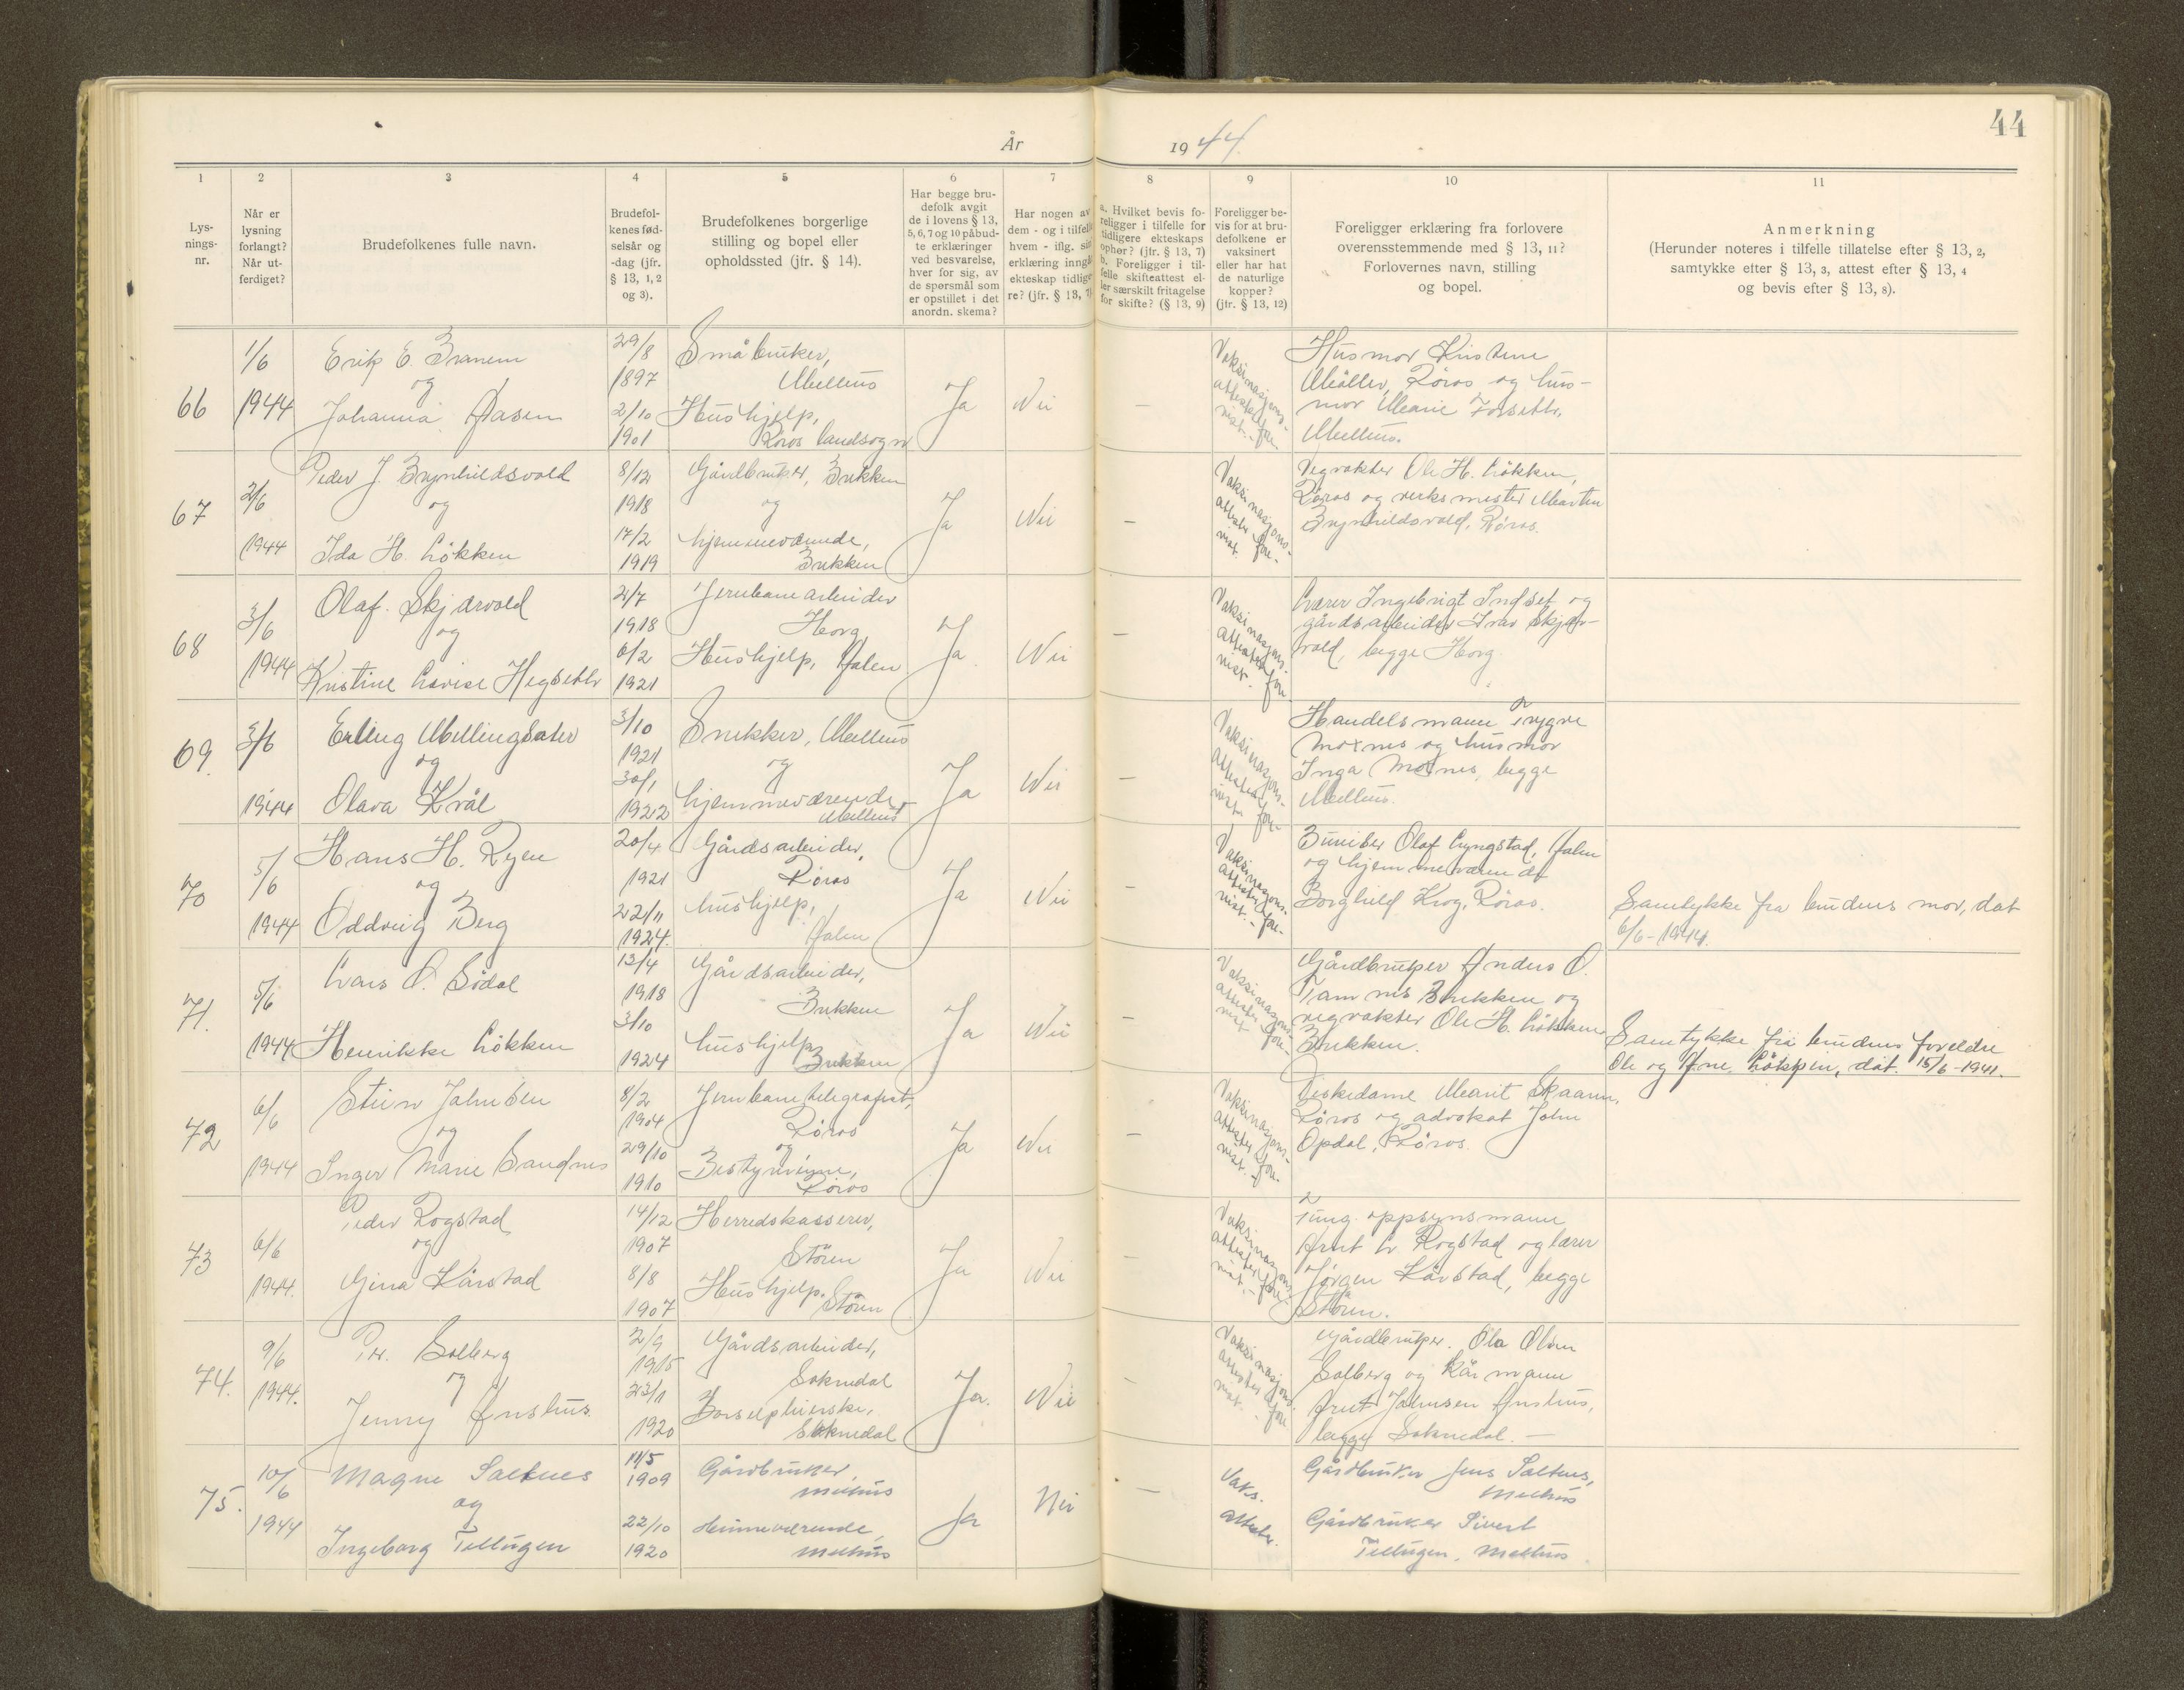 44
År 1944.
1
Lys-
nings-
nr.
2
Når er
lysning
forlangt?
Når ut-
ferdiget?
3
Brudefolkenes fulle navn.
4
Brudefol-
kenes fød-
selsår og
-dag (jfr.
§ 13, 1, 2
og 3).
5
Brudefolkenes borgerlige
stilling og bopel eller
opholdssted (jfr. § 14).
6
Har begge bru-
defolk avgit
de i lovens § 13,
5, 6, 7 og 10 påbud-
te erklæringer
ved besvarelse,
hver for sig, av
de spørsmål som
er opstillet i det
anordn. skema?
7
Har nogen av
dem - og i tilfelle
hvem - iflg. sin
erklæring inngå
ekteskap tidlige-
re? (jfr. § 13, 7)
8
a. Hvilket bevis fo-
religger i tilfelle for
tidligere ekteskaps
ophør? (jfr. § 13, 7)
b. Foreligger i til-
felle skifteattest el-
ler særskilt fritagelse
for skifte? (§ 13, 9)
9
Foreligger be-
vis for at bru-
defolkene er
vaksinert
eller har hat
de naturlige
kopper?
(jfr. § 13, 12)
10
Foreligger erklæring fra forlovere
overensstemmende med § 13, 11?
Forlovernes navn, stilling
og bopel.
11
Anmerkning
(Herunder noteres i tilfelle tillatelse efter § 13, 2,
samtykke efter § 13, 3, attest efter § 13, 4
og bevis efter § 13, 8).
66
1/6
1944
Erik E. Granem
og
Johanna Aasen
29/8
1897
2/10
1901
Småbruker,
Melhus
Hushjelp,
Røros landsogn
Ja
Nei
—
Vaksinasjons-
attester fore-
vist.-
Husmor Kristine
Møller, Røros og hus-
mor Marie Forseth,
Melhus.
67
2/6
1944
Peder J. Brynhildsvold
og
Ida H. Løkken
8/12
1918
17/2
1919
Gårdbruker, Brekken
og
hjemmeværende,
Brekken
Ja
Nei
—
Vaksinasjons-
attester fore-
vist.
Vegvokter Ole H. Løkken,
Røros og verksmester Martin
Brynhildsvold, Røros.
68
3/6
1944
Olaf Skjærvold
og
Kristine Lovise Hegseth
2/7
1918
6/2
1921
Jernbanearbeider
Horg
Hushjelp, Ålen
Ja
Nei
—
Vaksinasjons-
attester fore
vist.-
Lærer Ingebrigt Indset og
gårdsarbeider Ivar Skjær-
vold, begge Horg
69.
3/6
1944
Erling Mellingsæter
og
Olava Kvål
3/10
1921
30/1
1922
Snekker, Melhus
og
hjemmeværende
Melhus
Ja
Nei
—
Vaksinasjons-
attester fore-
vist
Handelsmann Trygve
Moxnes og husmor
Inga Moxnes, begge
Melhus.
70
5/6
1944
Hans H. Ryen
og
Oddveig Berg
20/4
1921
22/11
1924.
Gårdsarbeider,
Røros
hushjelp,
Ålen
Ja
Nei
—
Vaksinasjons-
attester fore-
vist.-
Olaf Lyngstad, Ålen
og hjemmeværende
Borghild Krog, Røros.
Samtykke fra brudens mor, dat
6/6-1944.
71.
5/6
1944
Lars O. Sødal
Henrikke Løkken
13/4
1918
3/10
1924
Gårdsarbeider,
Brekken
hushjelp
Brekken
Ja
Nei
—
Vaksinasjons-
attester fore-
vist
Gårdbruker Anders O.
Tamnes Brekken og
vegvokter Ole H. Løkken
Brekken.
Samtykke fra brudens foreldre
Ole og Ane Løkken, dat. 15/6-1941.
72
6/6
1944
Stein Johnsen
og
Inger Marie Sandnes
8/2
1904
29/10
1910
Jernbanetelegrafist,
Røros
og
Bestyrerinne,
Røros
Ja
Nei
—
Vaksinasjons-
attester fore-
vist.-
Diskedame Marit Skaann,
Røros og advokat John
Opdal, Røros.
73
6/6
1944.
Peder Rogstad
og
Gina Kårstad
14/12
1907
8/8
1907
Herredskasserer,
Støren
Hushjelp. Støren
Ja
Nei
—
Vaksinasjons-
attester fore-
vist.-
Tung. oppsynsmann
Arnt L. Rogstad og lærer
Jørgen Kårstad, begge
Støren.
74.
9/6
1944.
Per. Solberg
og
Jenny Anshus.
2/9
1915
23/1
1920
Gårdsarbeider,
Soknedal
Soknedal
Ja.
Nei
-
Vaksinasjons-
attester fore
vist.
Gårdbruker. Ola Olsen
Solberg og Kårmann
Arnt Johnsen Anshus,
begge Soknedal.—
75.
10/6
1944
Magne Saltnes
og
Ingeborg Tellugen
11/5
1909
22/10
1920
Gårdbruker,
Melhus
Heimeværende,
Melhus
Ja
Nei
—
Vaks.
attester.
Gårdbruker Jens Saltnes,
Melhus
Gårdbruker Sivert
Tellugen, Melhus